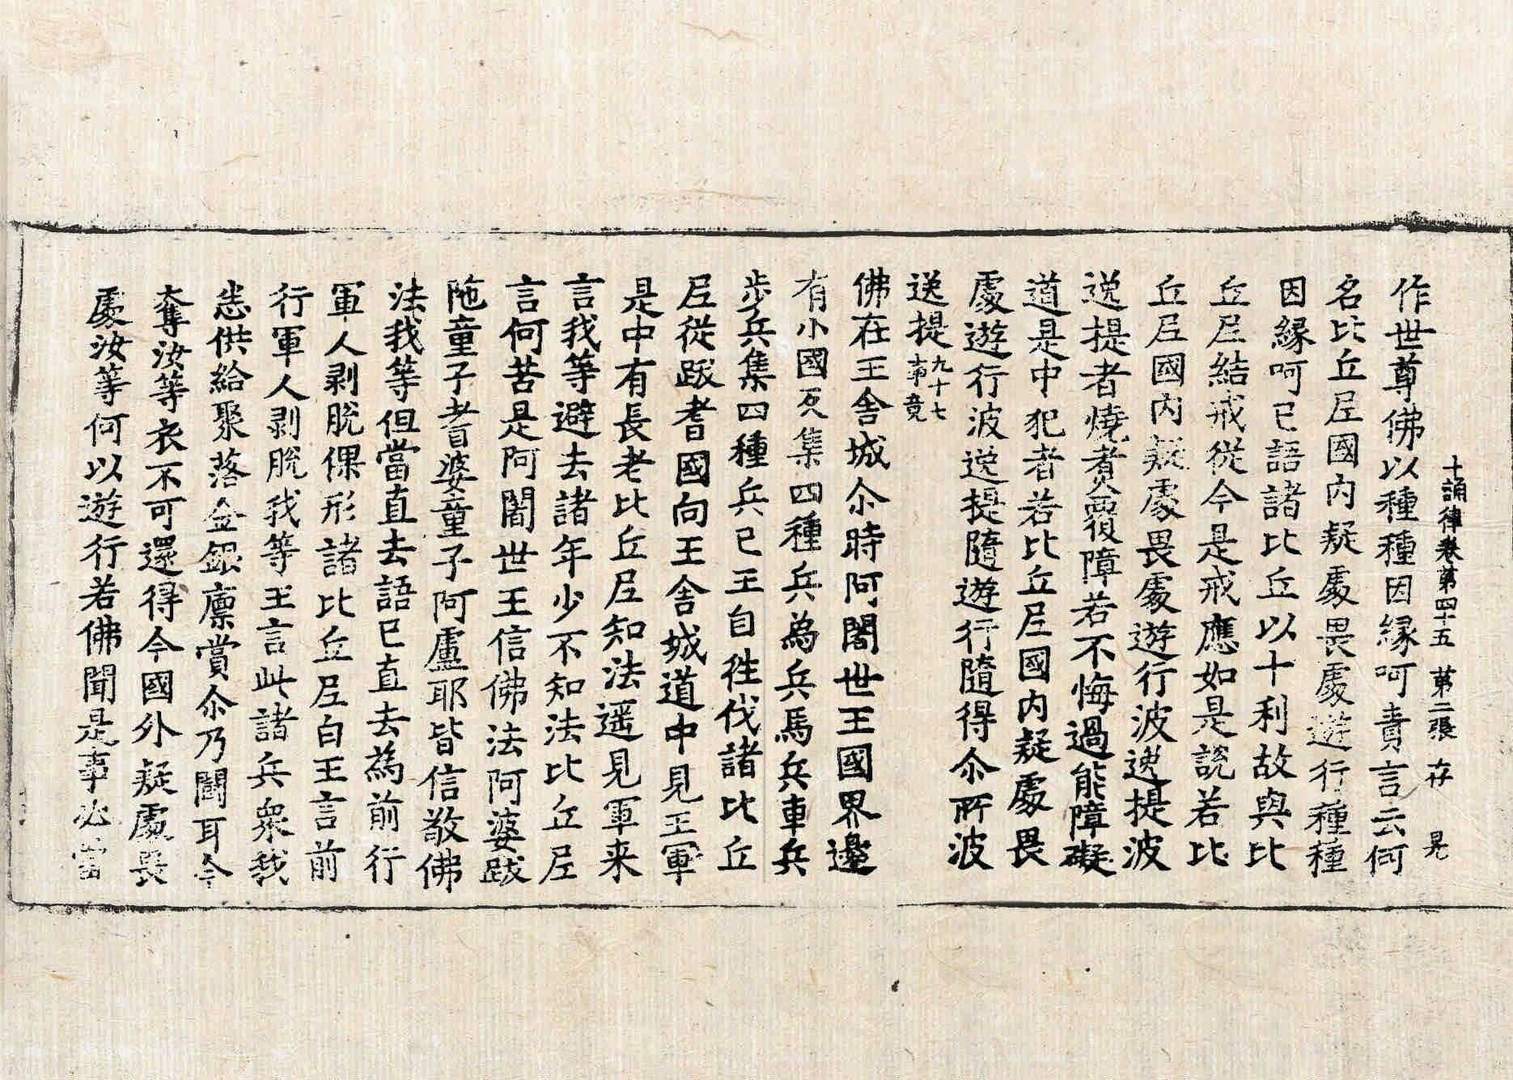 十誦律卷第四十五 第二張 存 晃
作世尊佛以種種因緣呵責言云何
名比丘尼國内疑處畏處遊行種種
因緣呵已語諸比丘以十利故與比
丘尼結戒從今是戒應如是說若比
丘尼國内疑處畏處遊行波逸提波
逸提者燒煮覆障若不悔過能障礙
道是中犯者若比丘尼國内疑處畏
處遊行波逸提隨遊行隨得尒所波
逸提九十七事竟
佛在王舍城尒時阿闍世王國界邊
有小國反集四種兵為兵馬兵車兵
步兵集四種兵已王自往伐諸比丘
尼從跋耆國向王舍城道中見王軍
是中有長老比丘尼知法遥見軍来
言我等避去諸年少不知法比丘尼
言何苦是阿闍世王信佛法阿婆跋
陁童子耆婆童子阿盧耶皆信敬佛
法我等但當直去語已直去為前行
軍人剥脫倮形諸比丘尼白王言前
行軍人剥脫我等王言此諸兵衆我
悉供給聚落金銀廪賞尒乃鬪耳今
奪汝等衣不可還得今國外疑處畏
處汝等何以遊行若佛聞是事必當